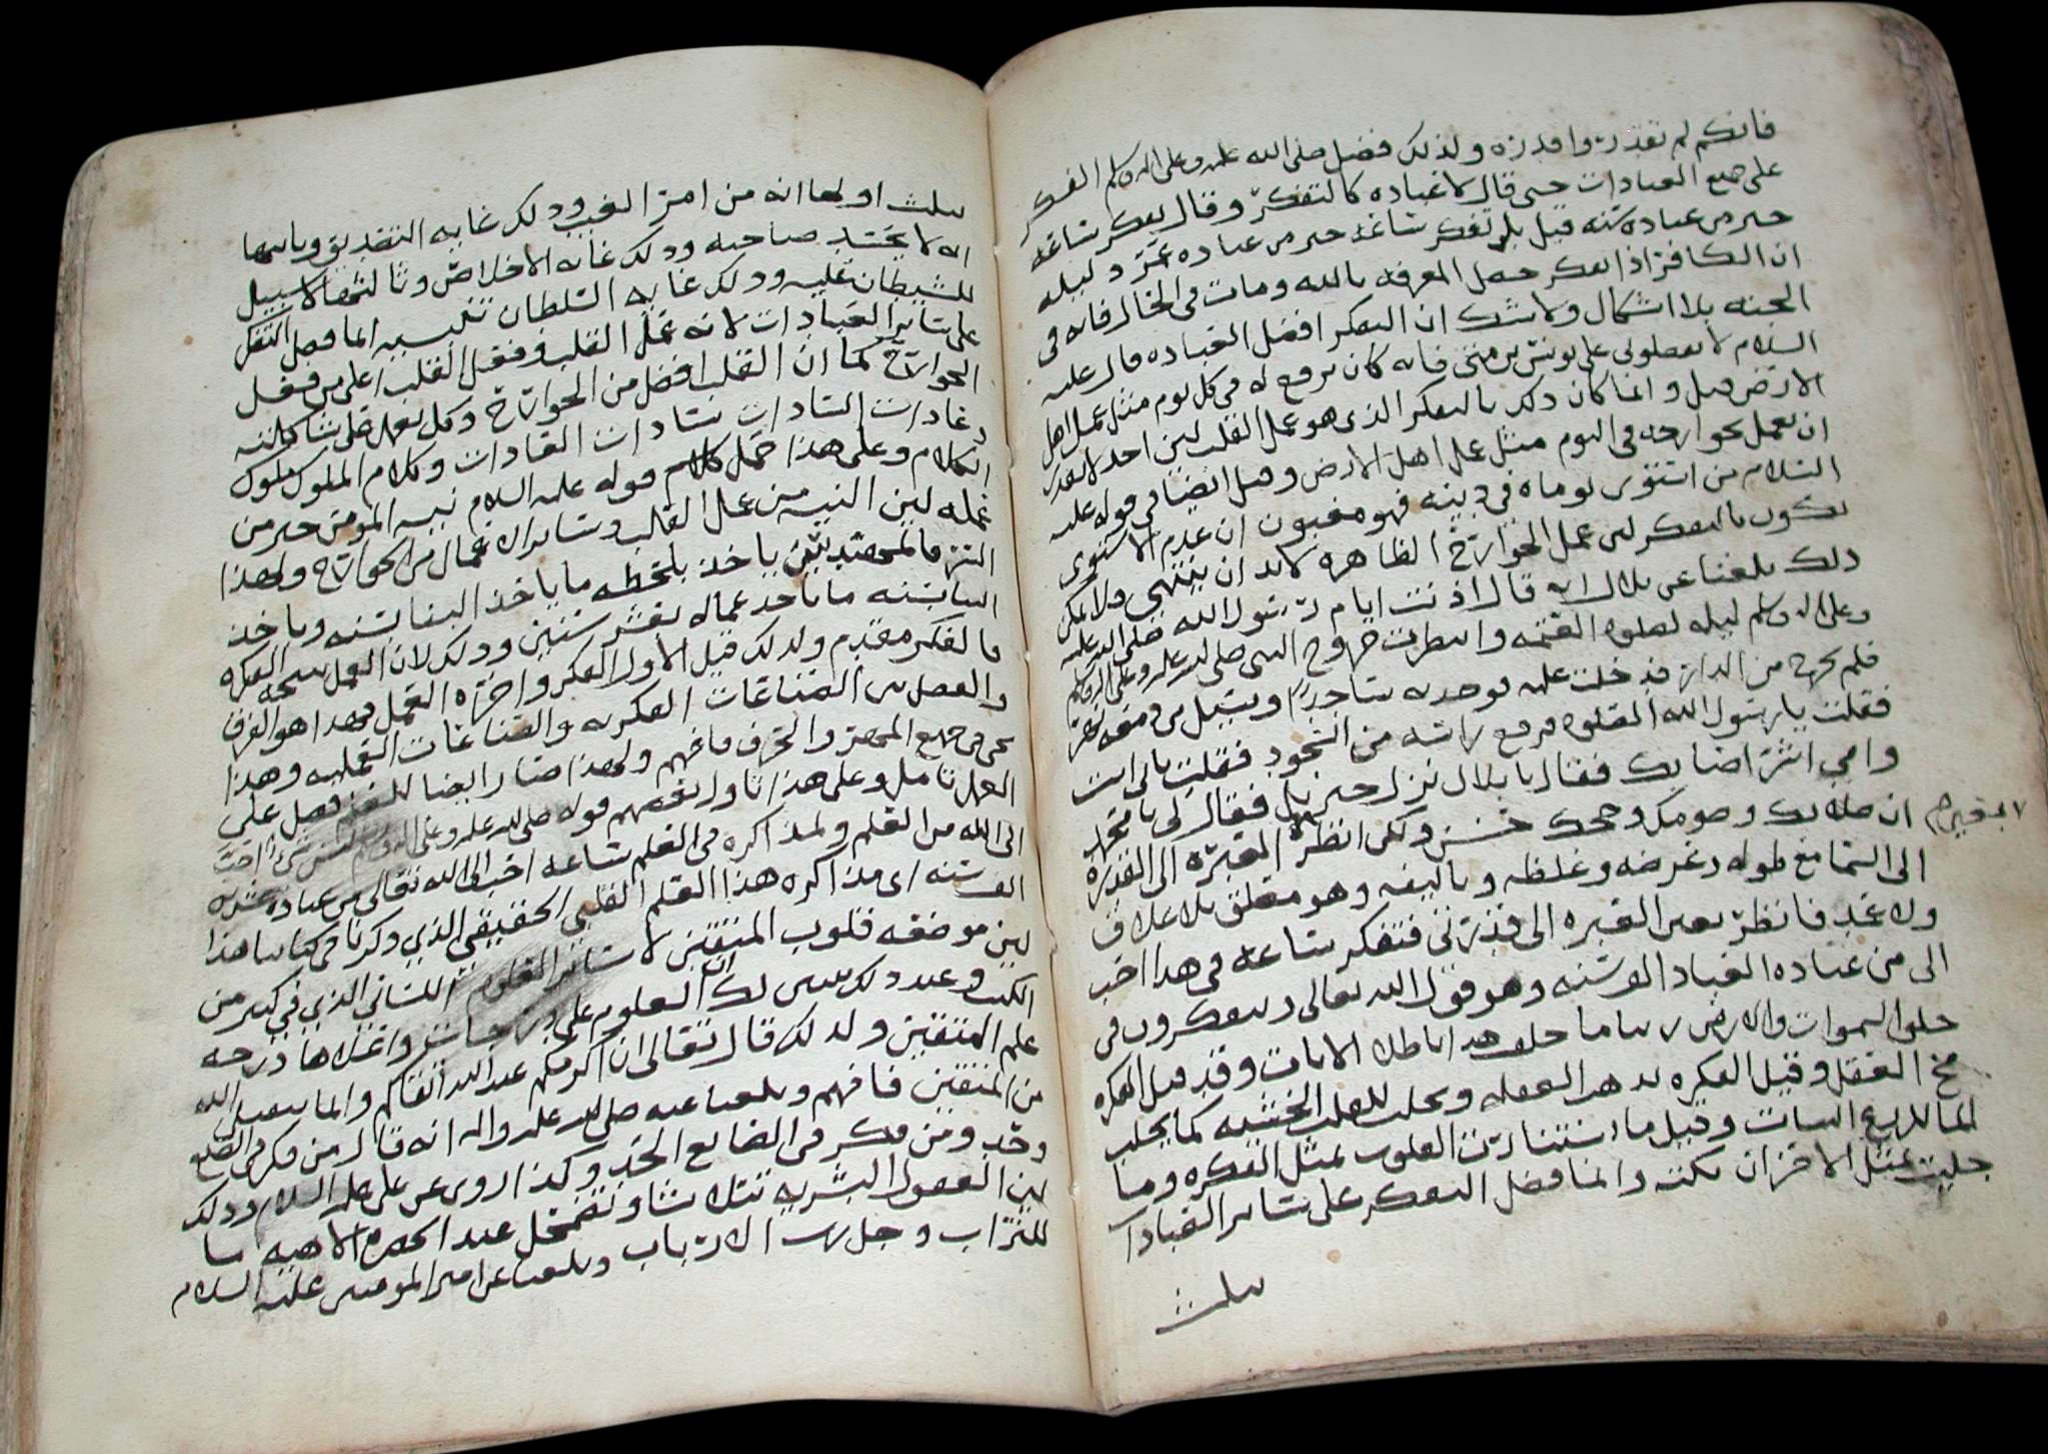 فانكم لم تقدروا قدره ولذلك فضل صلى الله عليه وعلى اله وسلم الفكر
على جميع العبادات حتى قال لا عباده كالتفكر وقال تفكر ساعه
خير من عباده سنه قيل بل تفكر ساعه خير من عباده عمر وليله
ان الكافر اذا تفكر حصل المعرفه بالله ومات في الحال فانه في
الجنه بلا اشكال ولا شك ان التفكر افضل العباده قال عليه
السلام لا تفضلوني على يونس بن متى فانه كان يرفع له في كل يوم مثل عمل اهل
الارض قيل وانما كان ذلك بالتفكر الذي هو عمل القلب لئن احد لا يقدر
ان يعمل بجوارحه في اليوم مثل عمل اهل الارض وقيل ايضا في قوله عليه
السلام من استوى يوماه في دينه فهو مغبون ان عدم الاستوى
يكون بالتفكر لئن عمل الجوارح الظاهره لا بد ان ينتهي ولا يمكن
ذلك بلغنا عن بلال انه قال اذنت ايام رسول الله صلى الله عليه
وعلى اله وسلم ليله لصلوه العتمه وانتظرت خروج النبي صلى الله عليه وعلى اله وسلم
فلم يخرج من الدار فدخلت عليه فوجدته ساجدا ويسيل من دمعه
فقلت يا رسول الله الصلوه فرفع راسه من السجود فقلت بابي انت
وامي اشر اصابك فقال يا بلال نزل جبريل فقال لي يا محمد
ان صلاتك وصومك وحجك حسن ولكن انظر المقبره الى القدره
الى السما مع طوله وعرضه وغلظه وتاليفه وهو معلق بلا علاق
ولا عمد فانظر بعين العبره الى قدرتي فتفكر ساعه في هذا احب
الي من عباده العباد الف سنه وهو قول الله تعالى ويتفكرون في
خلق السموات والارض ربنا ما خلقت هذا باطلا الايات وقد قيل الفكره
مخ العقل وقيل الفكره تذهب الغفله وتجلب للقلب الخشيه كما يجلب
الما للزرع النبات وقيل ما استنارت القلوب بمثل الفكره وما
جليت بمثل الاحزان نكته وانما فضل التفكر على سائر العبادات
بثلث
بثلث اولها انه من امر الغيب وذلك غايه التصديق وثانيها
انه لا يحسد صاحبه وذلك غايه الاخلاص وثالثها لا سبيل
للشيطان عليه وذلك غايه السلطان تنبيه انما فضل التفكر
على سائر العبادات لانه عمل القلب وفعل القلب اعلى من فعل
الجوارح كما ان القلب افضل من الجوارح وكل يعمل على شاكلته
وعادات السادات سادات العادات وكلام الملوك ملوك
الكلام وعلى هذا حمل قوله عليه السلام نيه المومن خير من
عمله لئن النيه من عمل القلب وسائر الاعمال من الجوارح ولهذا
ياخذ بلحظه ما ياخذ البنا بسنه وياخذ
البنا بسنه ما ياخذ عماله بعشر سنين وذلك لان العمل نتيجه الفكره
فالفكر مقدم ولذلك قيل الاول الفكر واخره العمل فهذا هو الفرق
والفصل بين الصناعات الفكريه والصناعات العمليه وهذا
يجري في جميع المهن والحرف فافهم ولهذا صار ايضا للعلم فضل على
العمل تامل وعلى هذا تاول بعضهم قوله صلى الله عليه وعلى اله وسلم
الى الله من العلم ولمذاكره في العلم ساعه احب الى الله تعالى من عباده عشره
الف سنه اي مذاكره هذا العلم القلبي الحقيقي الذي ذكرنا في كتابنا هذا
لئن موضعه قلوب المتقين لا سائر العلوم اللساني الذي في كثير من
الكتب وعند ذلك يتبين لك ان العلوم على درجات واعلاها درجه
علم المتقين ولذلك قال تعالى ان اكرمكم عند الله اتقاكم وانما يتقبل الله
من المتقين فافهم وبلغنا عنه صلى الله عليه واله انه قال من فكر في الصنع
وحد ومن فكر في الصانع الحد وكذا روي عن علي عليه السلام وذلك
لئن العقول البشريه تتلاشا وتضمحل عند الحضره الالاهيه ما
للتراب وجل رب الارباب وبلغنا عن امير المومنين عليه السلام